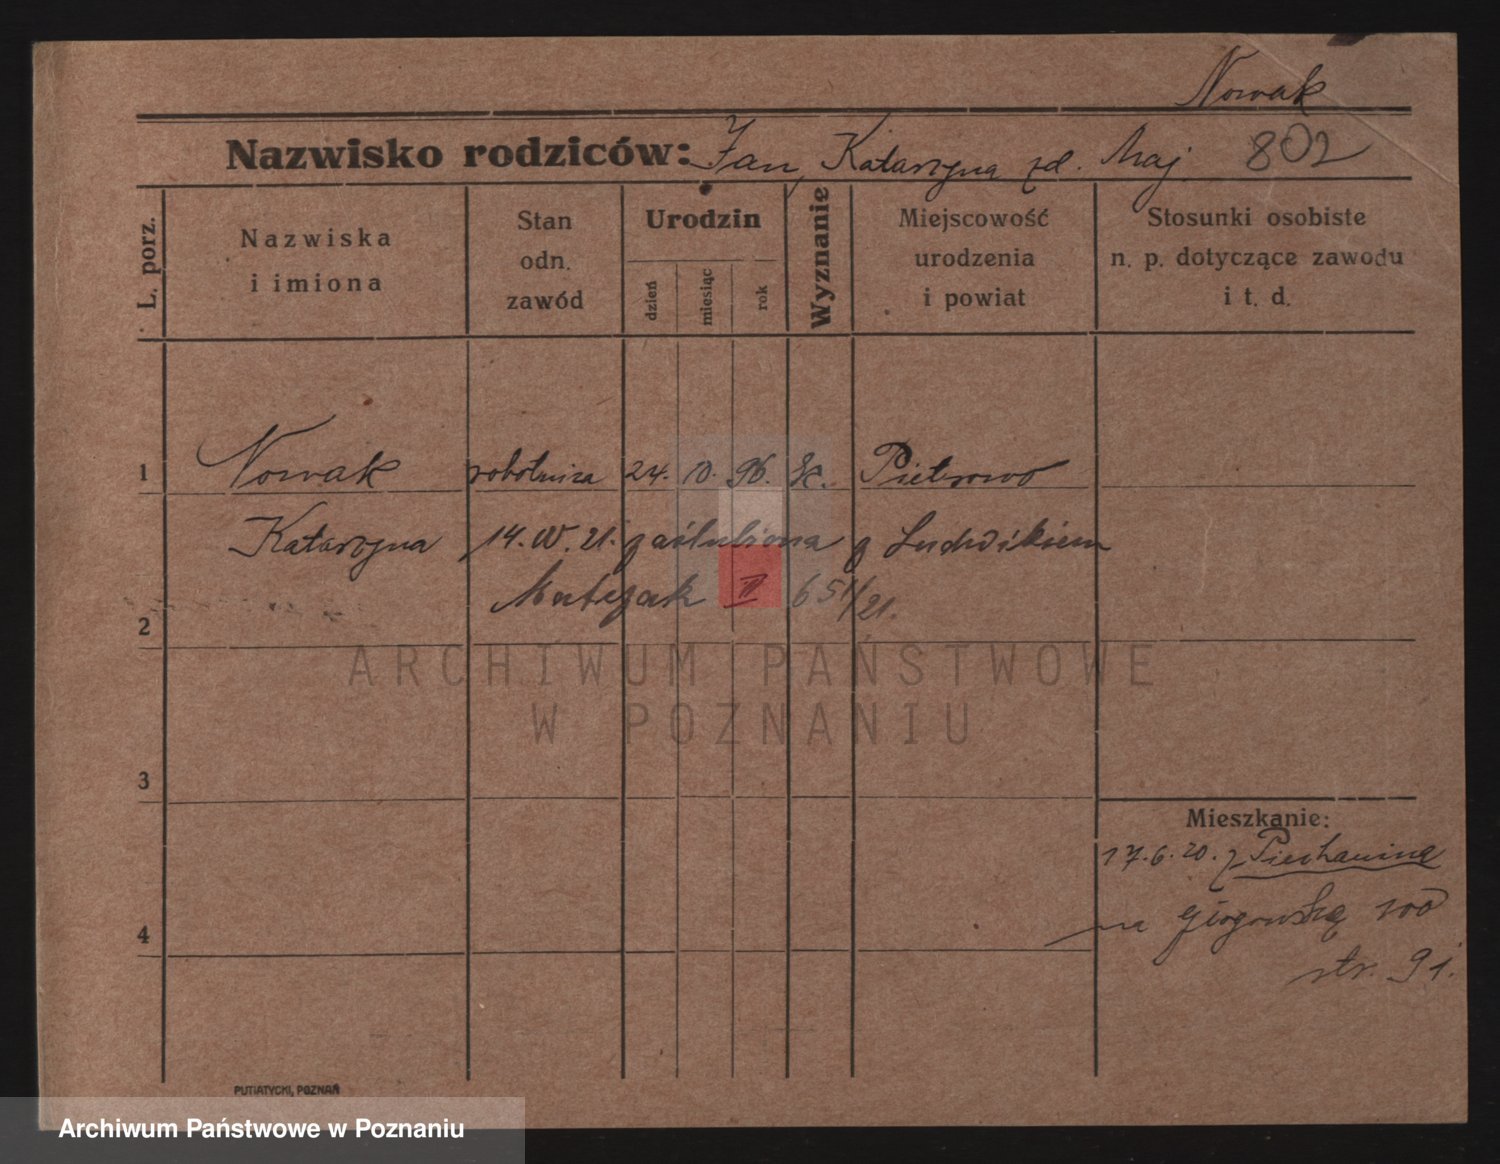 Nowak
Nazwisko rodziców: Jan, Katarzyna zd. Maj 802
L. porz.
Nazwiska
i imiona
Stan
odn.
zawód
Urodzin
dzień
miesiąc
rok
Wyznanie
Miejscowość
urodzenia
i powiat
Stosunki osobiste
n. p. dotyczące zawodu
i t. d.
1 Nowak robotnica 24. 10. 96. Pietrowo
Katarzyna 14. 21. zaślubiona z Ludwikiem
Matczak II 651/21.
2
ARCHIWUM PAŃSTWOWE
W POZNANIU
3
Mieszkanie:
17.6.20. z Piechanina
na Głogowską 100
4
str. 91.
PUTIATYCKI, POZNAŃ
Archiwum Państwowe w Poznaniu